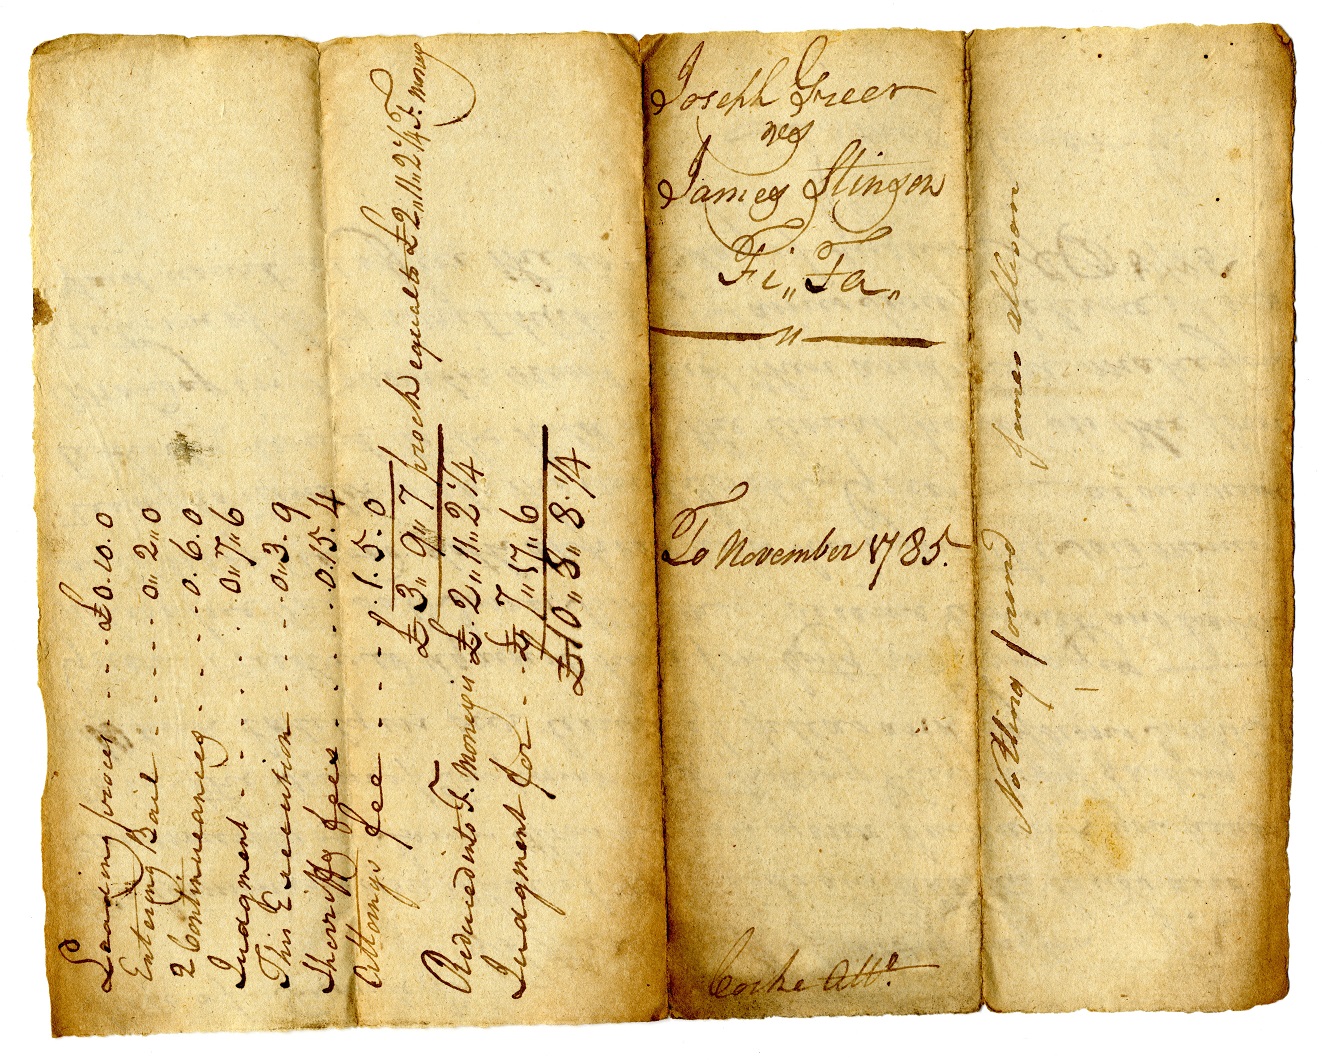 Leading process - - - £0.10.0
Entering Bail - - - - 0"2"0
2 Continueances - - - - 0.6.0
Judgment - - - - - 0"7"6
This Execution - - - - 0"3.9
Sherriffs fees - - - - 0.15.4
Attornys fee - - - - 1.5.0
£3"9"7 prock equal to £2"11"2¼ S. money
Reduced to S. Moneys £.2"11"2¼
Judgment for - - £7"17"6
£10"8"8.¼
Joseph Greer
vs
James Stinson
Fi" Fa"
To November 1785.
Cocke Atto.
Nothing found James allison